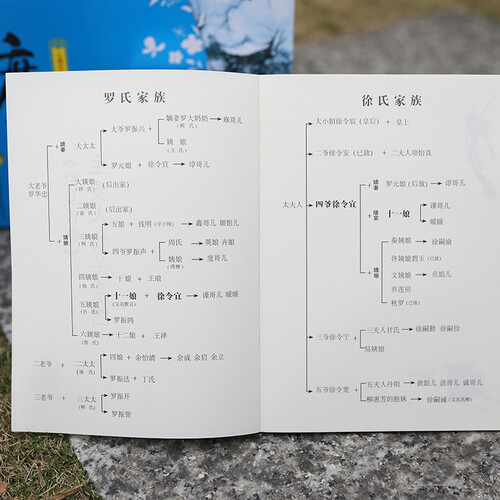 罗氏家族
嫡妻罗大奶奶
麻哥儿
大爷罗振兴 +
姨娘
嫡妻
大太太
大老爷
罗华忠
罗元娘 + 徐令宜 谆哥儿
大姨娘 (后出家)
二姨娘 (后出家)
五娘 + 钱明(字子纯) 鑫哥儿 银姐儿
三姨娘
姨娘
周氏 英娘 卉娘
四爷罗振声 +
姨娘 度哥儿
四姨娘 十娘 + 王琅
五姨娘 十一娘 + 徐令宜 谨哥儿 暖暖
罗振鸿
六姨娘 十二娘 + 王泽
二老爷 + 二太太 四娘 + 余怡清 余成 余启 余立
罗振达 + 丁氏
三老爷 + 三太太 罗振开
罗振誉
徐氏家族
大小姐徐令宸(皇后) + 皇上
二爷徐令安(已故) + 二夫人项怡真
嫡妻 罗元娘(后故) 谆哥儿
太夫人 四爷徐令宜
继室 十一娘 谨哥儿
暖暖
秦姨娘 徐嗣谕
佟姨娘碧玉(已故)
姨娘
文姨娘 贞姐儿
乔莲房
秋罗(已故)
三爷徐令宁 + 三夫人甘氏 徐嗣勤 徐嗣俭
易姨娘
五爷徐令宽 + 五夫人丹阳 歆姐儿 诜哥儿 诚哥儿
柳惠芳的胞妹 徐嗣诫